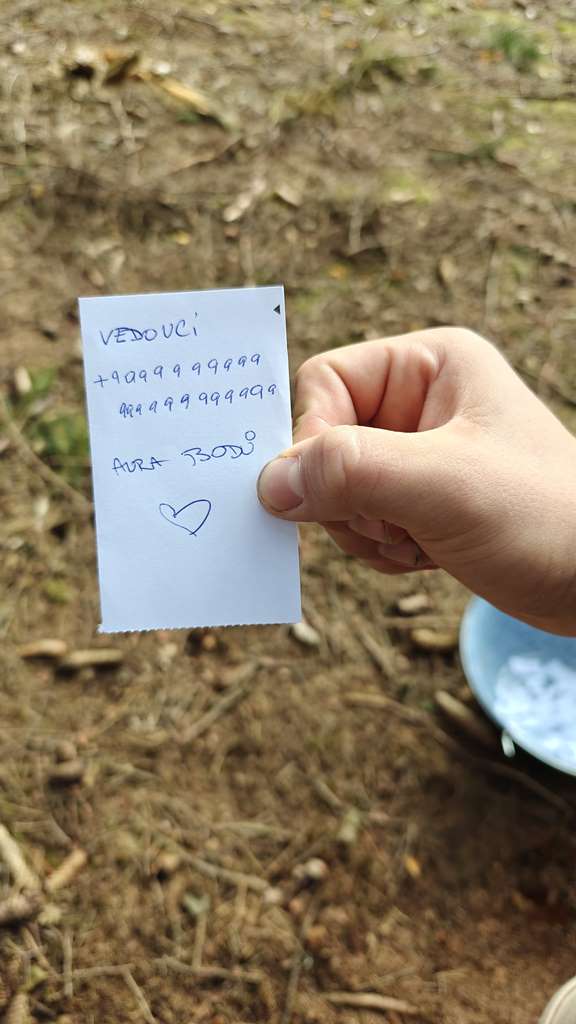 VEDOUCÍ
+9099999999
999999999999
AURA BODŮ